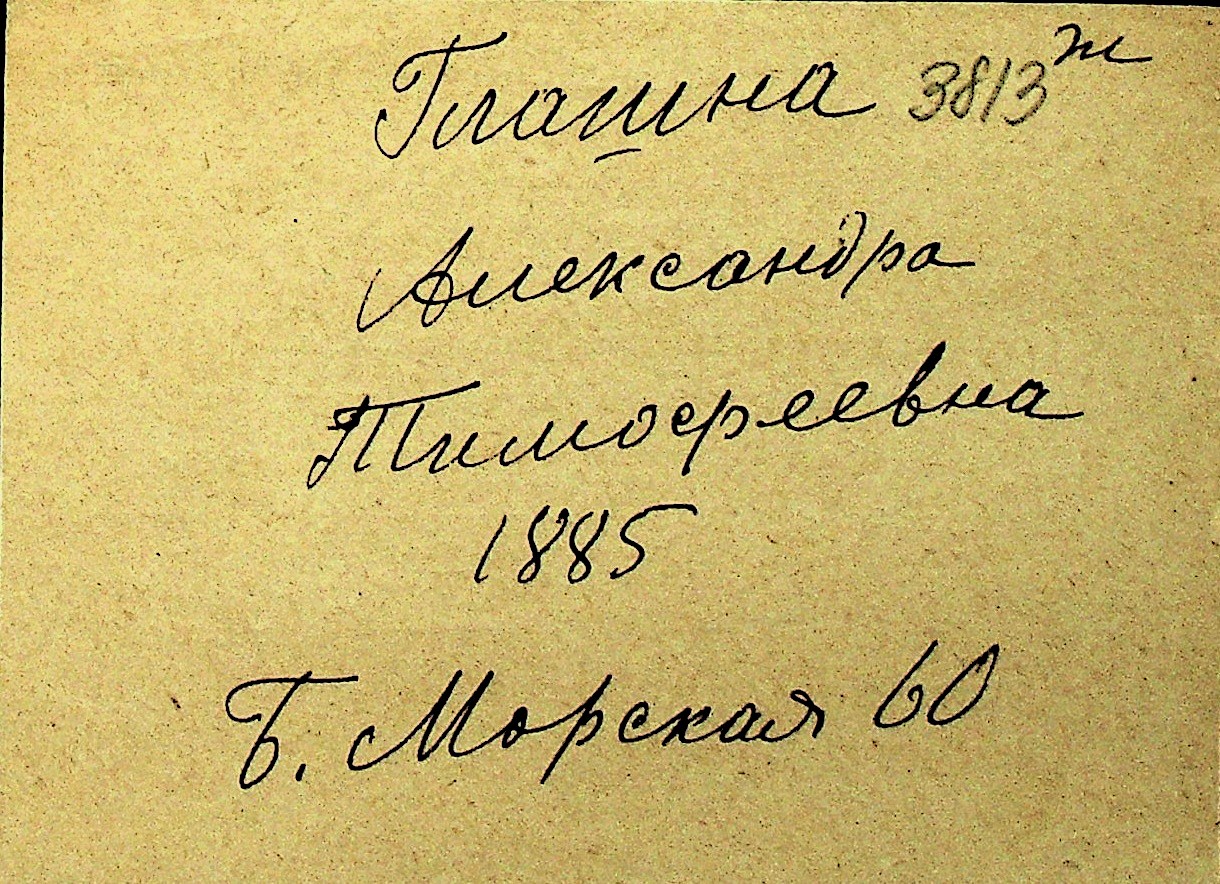 Глашна 3813 ж
Александра
Тимофеевна
1885
Б. Морская 60